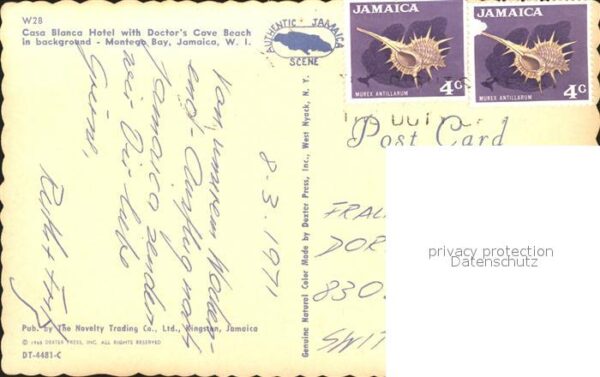 W28
Casa Blanca Hotel with Doctor's Cove Beach
in background - Montego Bay, Jamaica, W. I.
AUTHENTIC JAMAICA
SCENE
JAMAICA
MUREX ANTILLARUM
4c
JAMAICA
MUREX ANTILLARUM
4c
Post Card
8-3.1971
Von unserem
Ausflug nach
Jamaica senden
wir Dir liebe
Grüsse,
Ruth + Fritz
Genuine Natural Color Made by Dexter Press, Inc., West Nyack, N. Y.
DOR
830
SWIT
privacy protection
Datenschutz
Pub. by The Novelty Trading Co., Ltd., Kingston, Jamaica
© 1968 DEXTER PRESS, INC. ALL RIGHTS RESERVED
DT-4481-C